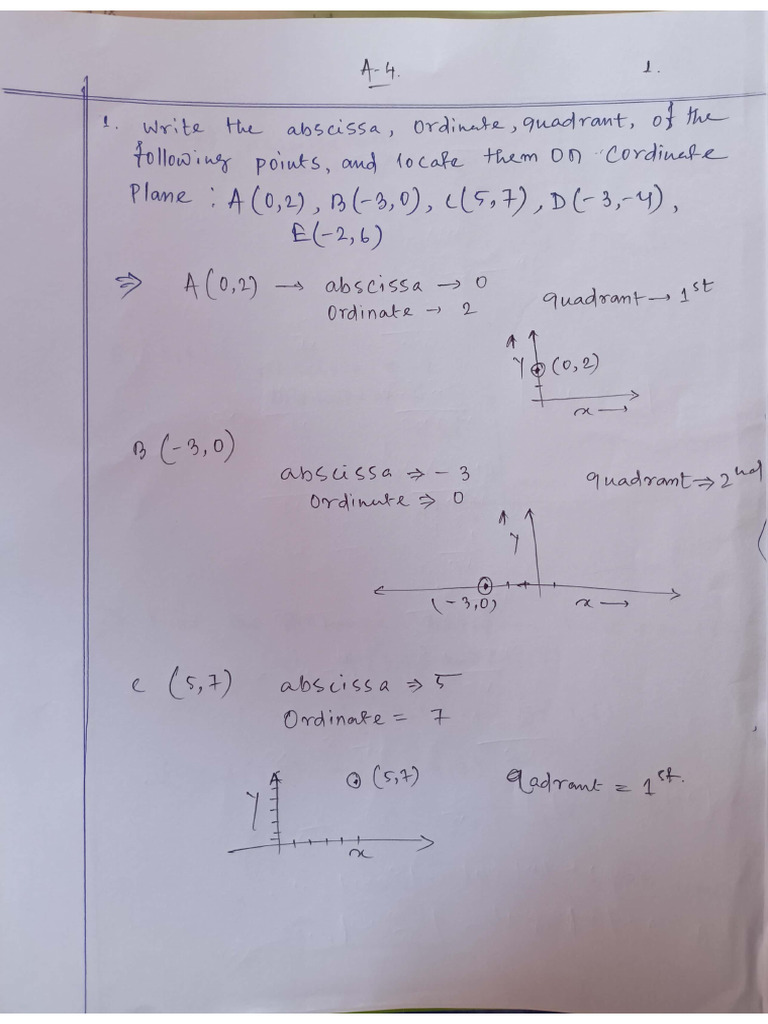 A-4.
1.
1. Write the abscissa, Ordinate, quadrant, of the
following points, and locate them on Cordinate
Plane : A(0,2), B(-3,0), C(5,7), D(-3,-4),
E(-2,6)
⇒ A(0,2) → abscissa → 0
Ordinate → 2
quadrant → 1st
Y (0,2)
x →
B (-3,0)
abscissa ⇒ -3
Ordinate ⇒ 0
quadrant ⇒ 2nd
Y
(-3,0) x →
C (5,7) abscissa ⇒ 5
Ordinate = 7
(5,7) Qadrant = 1st.
Y
x